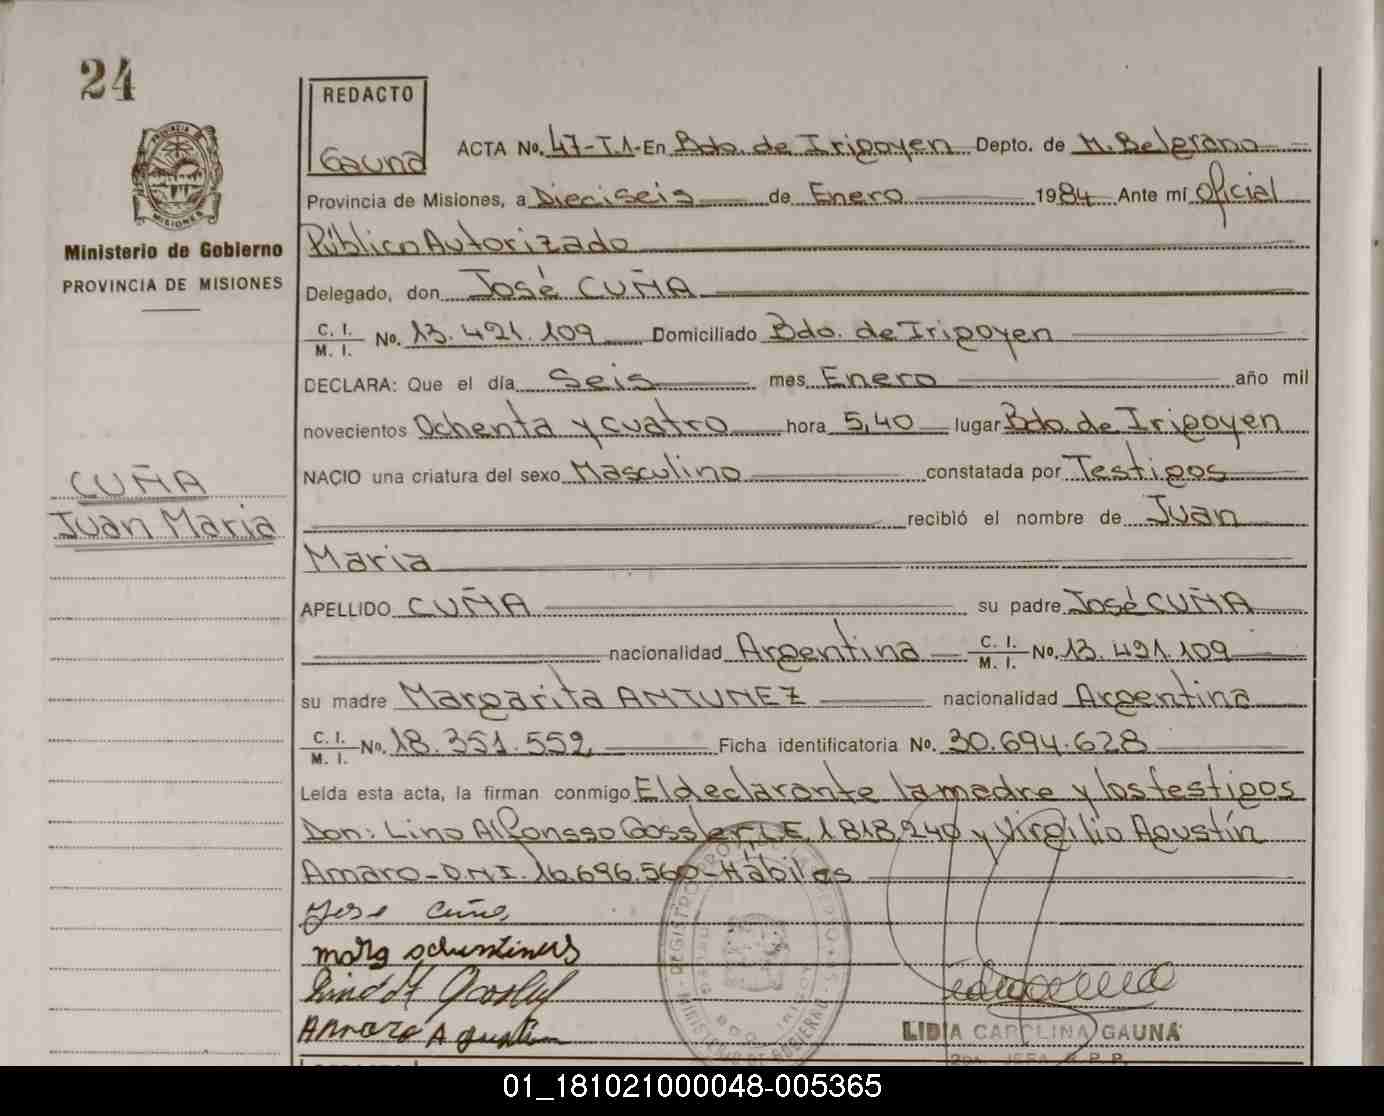 24
REDACTO
Gauna
ACTA No. 47-T1-En Bdo. de Irigoyen Depto. de M. Belgrano
Provincia de Misiones, a Dieciseis de Enero 1984 Ante mí Oficial
Público Autorizado
Delegado, don José CUÑA
C. I.
M. I. No. 13.421.109 Domiciliado Bdo. de Irigoyen
DECLARA: Que el día Seis mes Enero año mil
novecientos Ochenta y cuatro hora 5,40 lugar Bdo de Irigoyen
NACIO una criatura del sexo Masculino constatada por Testigos
recibió el nombre de Juan
Maria
APELLIDO CUÑA su padre José CUÑA
nacionalidad Argentina C. I. M. I. No. 13.421.109
su madre Margarita ANTUNEZ nacionalidad Argentina
C. I.
M. I. No. 18.351.552 Ficha identificatoria No. 30.694.628
Leída esta acta, la firman conmigo El declarante la madre y los testigos
Don: Lino Alfonsso Gossler L.E. 1.818.240 y Virgilio Agustín
Amaro-D.N.I. 16.696.560-Hábiles
Jose Cuña
Amaro Agustin
LIDIA CAROLINA GAUNA
2DA. JEFA R.P.P.
PROVINCIA DE
MISIONES
Ministerio de Gobierno
PROVINCIA DE MISIONES
CUÑA
Juan Maria
01_181021000048-005365